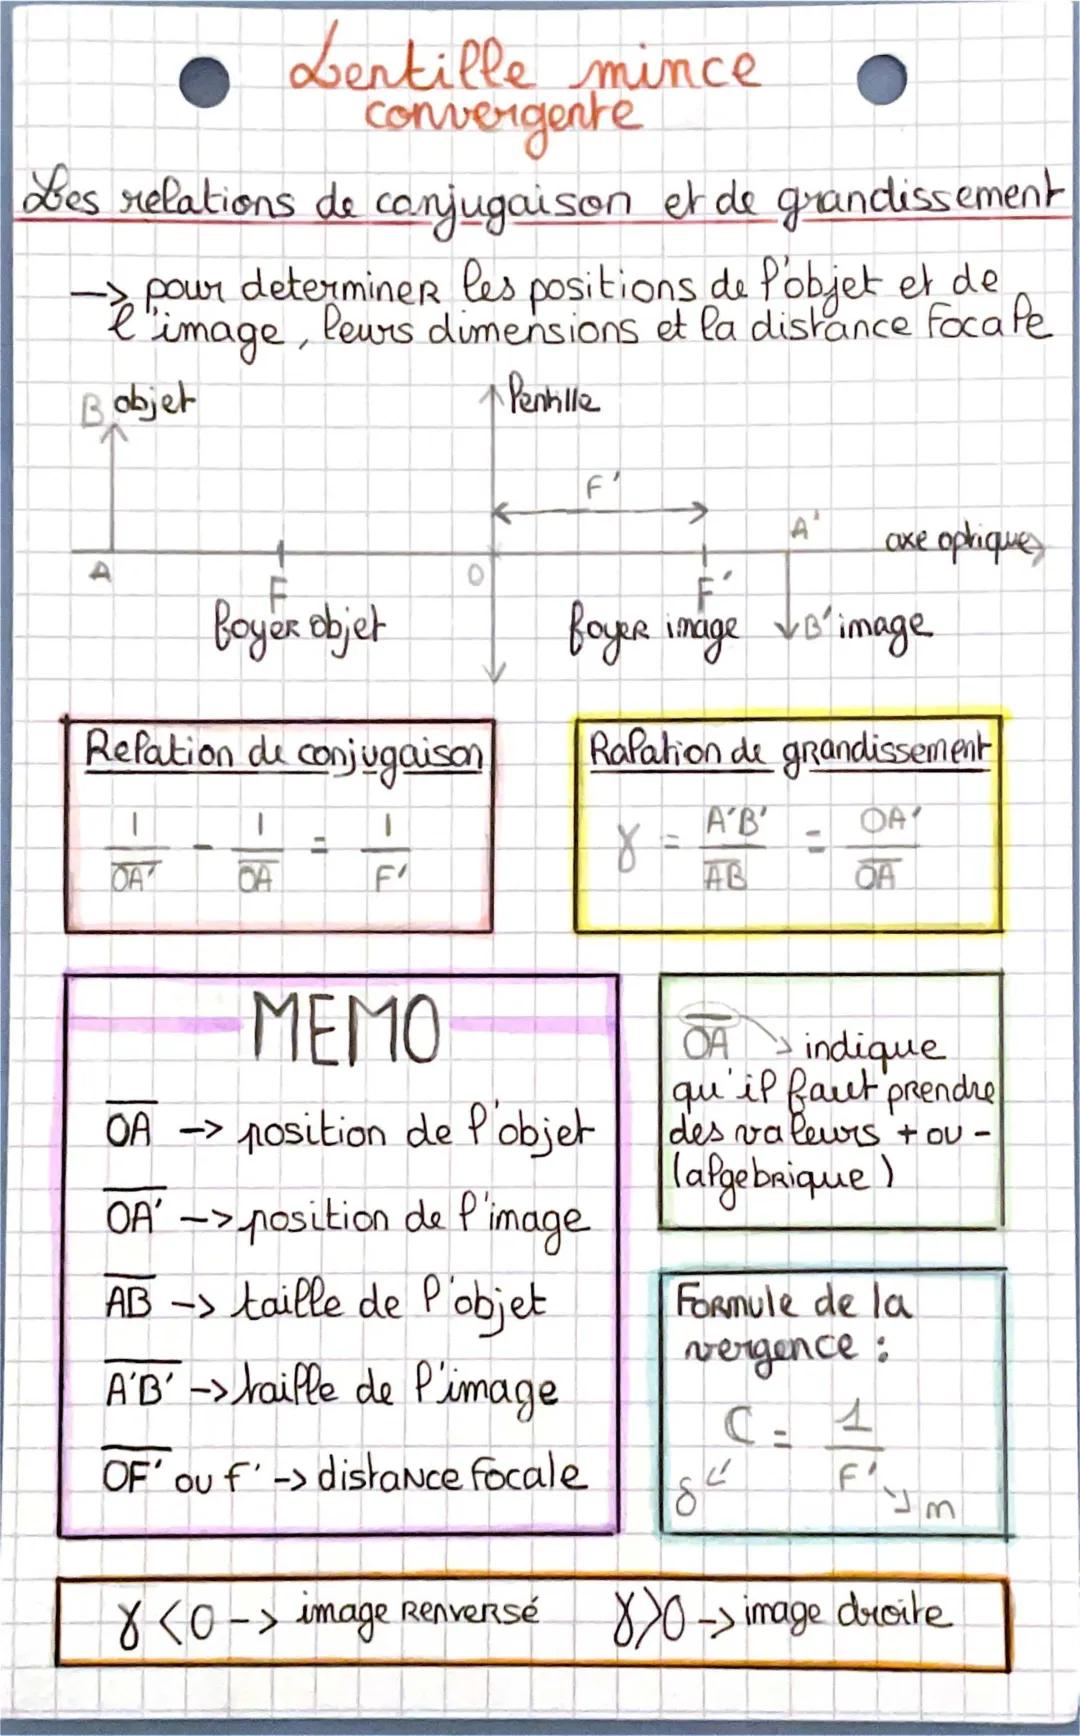 Lentille mince
convergente
Les relations de conjugaison et de grandissement
-> pour determiner les positions de l'objet et de
l'image, leurs dimensions et la distance focale
B objet
lentille
F'
A'
axe optique
A
F
O
F'
foyer objet
foyer image
B' image
Relation de conjugaison
1/OA' - 1/OA = 1/F'
Ralation de grandissement
γ = A'B'/AB = OA'/OA
MEMO
OA -> position de l'objet
OA' -> position de l'image
AB -> taille de l'objet
A'B' -> taille de l'image
OF' ou f' -> distance focale
OA -> indique
qu'il faut prendre
des valeurs + ou -
(algebrique)
Formule de la
vergence :
C = 1/F'
δ
m
γ<0 -> image renversé γ>0 -> image droite